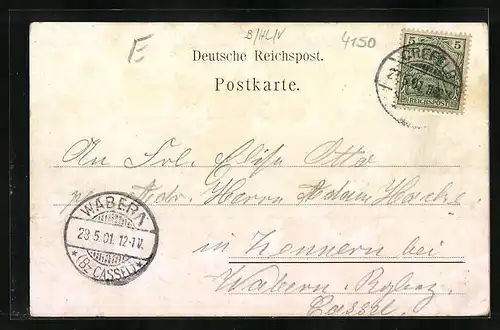 B/HL/V
E
4150
5 5
REICHSPOST
CREFELD
Deutsche Reichspost.
Postkarte.
An Frl. Elise Otto
Adr. Herrn Adam
in Zennern bei
Wabern. Rgbez.
Cassel.
WABERN
28.5.01. 12-1 V.
* (Bz CASSEL) *